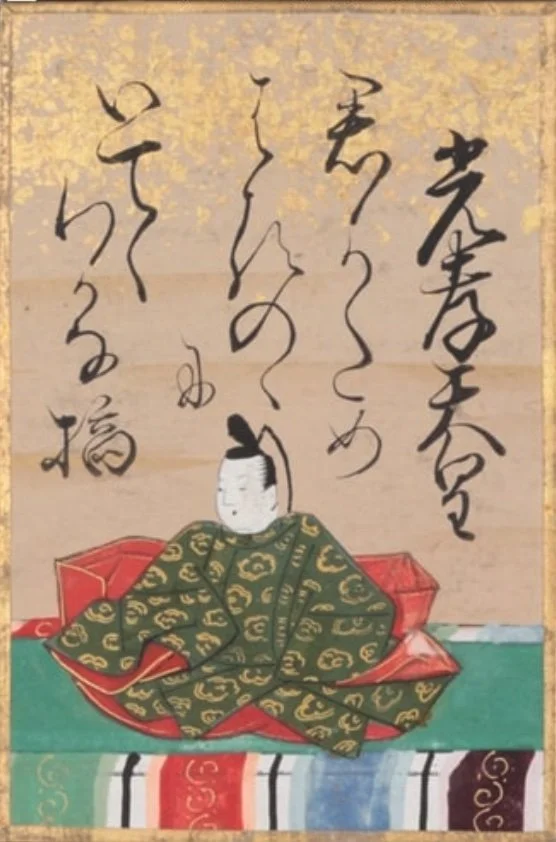 光孝天皇
君かため
はるのゝ
に
いてゝわかな摘